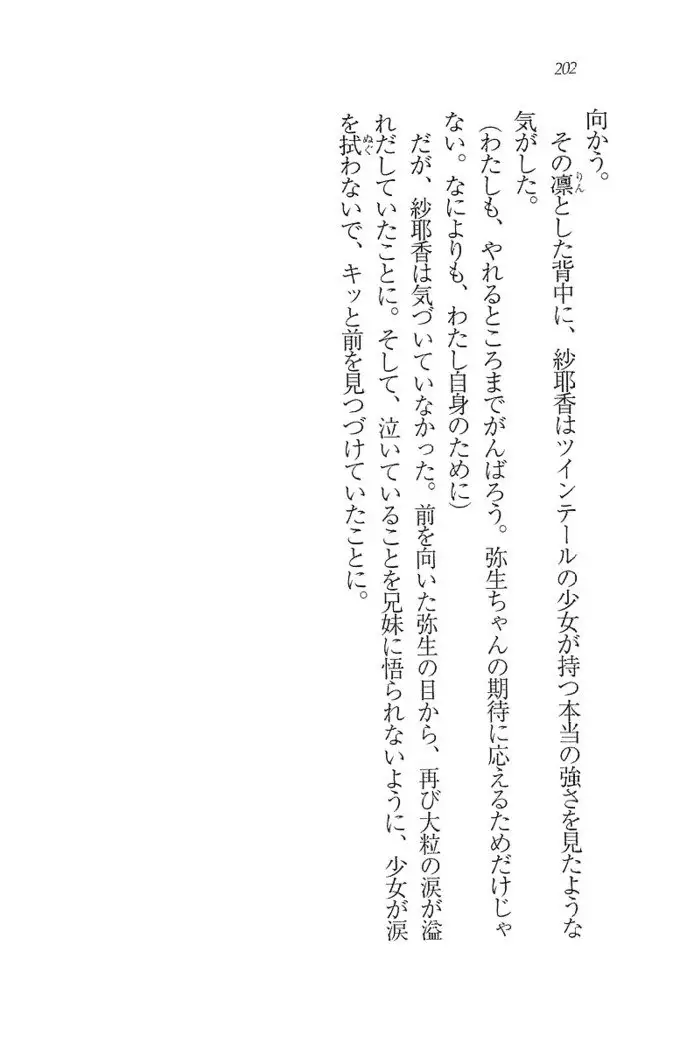 202
向かう。
その凛とした背中に、紗耶香はツインテールの少女が持つ本当の強さを見たような
気がした。
(わたしも、やれるところまでがんばろう。弥生ちゃんの期待に応えるためだけじゃ
ない。なによりも、わたし自身のために)
だが、紗耶香は気づいていなかった。前を向いた弥生の目から、再び大粒の涙が溢
れだしていたことに。そして、泣いていることを兄妹に悟られないように、少女が涙
を拭わないで、キッと前を見つづけていたことに。